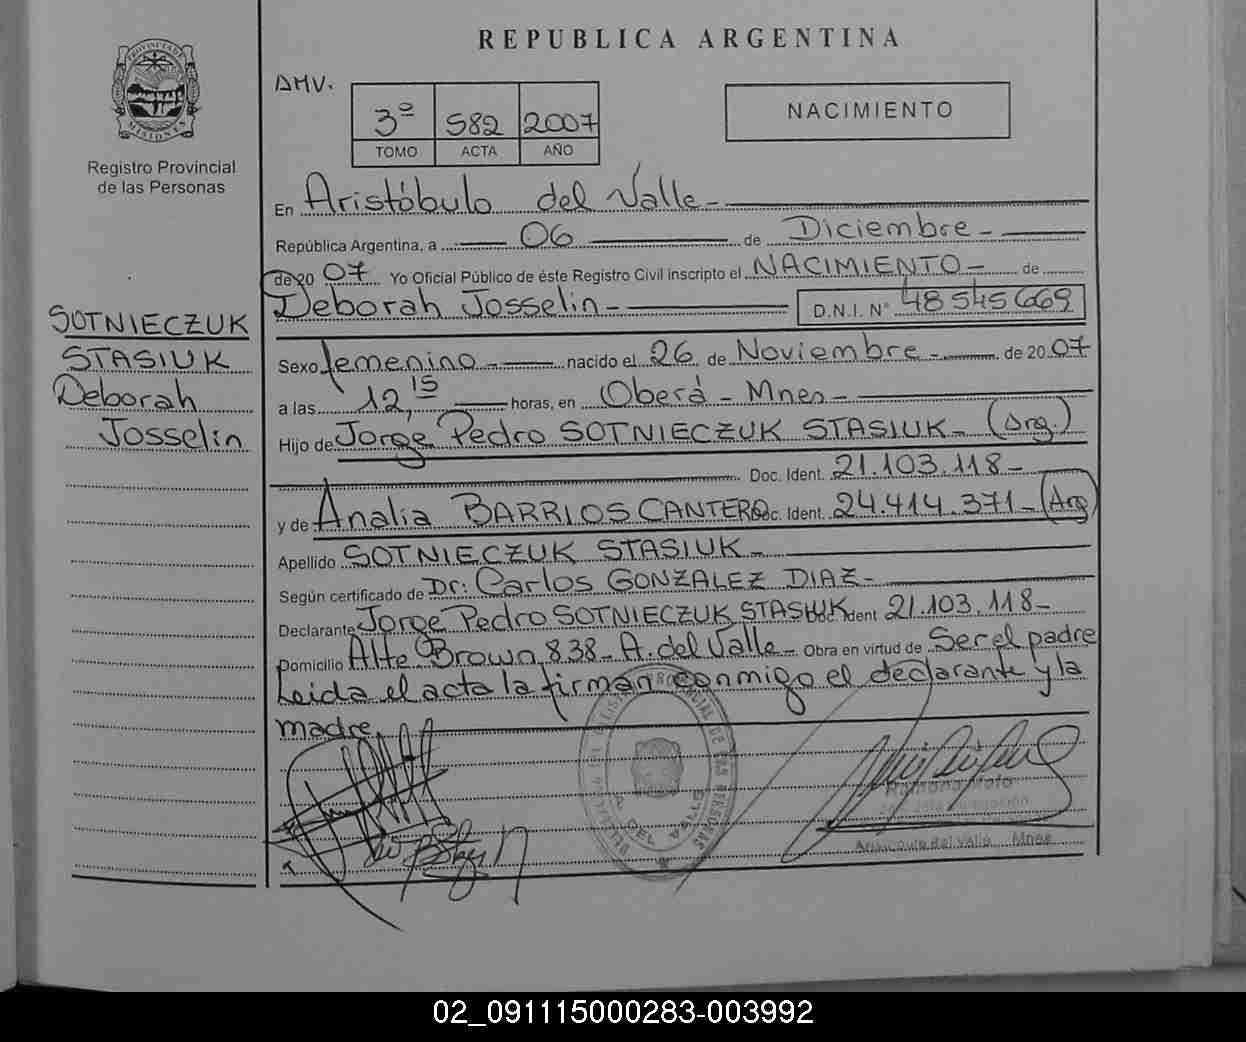 REPUBLICA ARGENTINA
PROVINCIA DE MISIONES
Registro Provincial
de las Personas
AMV.
3º 582 2007
TOMO ACTA AÑO
NACIMIENTO
En Aristóbulo del Valle -
República Argentina, a 06 de Diciembre -
de 20 07 Yo Oficial Público de éste Registro Civil inscripto el NACIMIENTO - de
Deborah Josselin - D.N.I. N° 48545669
SOTNIECZUK
STASIUK
Deborah
Josselin
Sexo femenino - nacido el 26 de Noviembre - de 20 07
a las 12,15 horas, en Oberá - Mnes -
Hijo de Jorge Pedro SOTNIECZUK STASIUK - (Arg.)
Doc. Ident. 21.103.118 -
y de Analia BARRIOS CANTERO Doc. Ident. 24.414.371 - (Arg)
Apellido SOTNIECZUK STASIUK -
Según certificado de Dr: Carlos GONZALEZ DIAZ -
Declarante Jorge Pedro SOTNIECZUK STASIUK Doc. Ident 21.103.118 -
Domicilio Alte Brown 838 - A. del Valle - Obra en virtud de Ser el padre
Leida el acta la firman conmigo el declarante y la
madre
Ramona
Aristóbulo del Valle Mnes
02_091115000283-003992